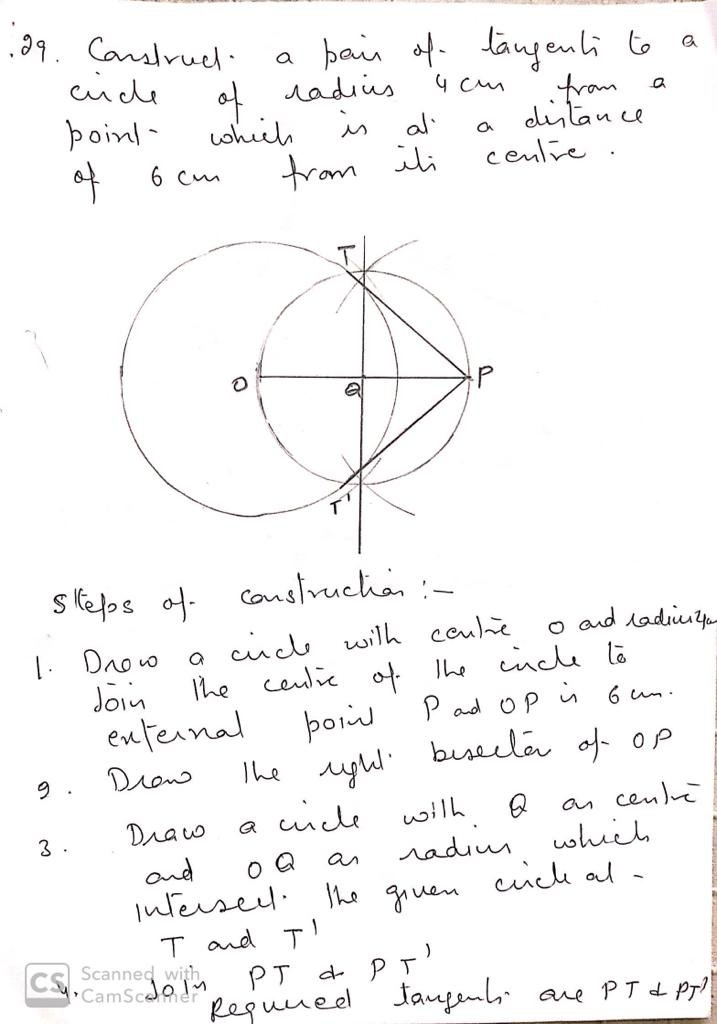 29. Construct a pair of tangents to a
circle of radius 4 cm from a
point which is at a distance
of 6 cm from its centre.
T
O
Q
P
T'
Steps of construction :-
1. Draw a circle with centre O and radius 4cm
Join the centre of the circle to
external point P and OP is 6 cm.
2. Draw the right bisector of OP
3. Draw a circle with Q as centre
and OQ as radius which
intersect the given circle at -
T and T'
4. Join PT & PT'
Required tangents are PT & PT'
CS Scanned with
CamScanner